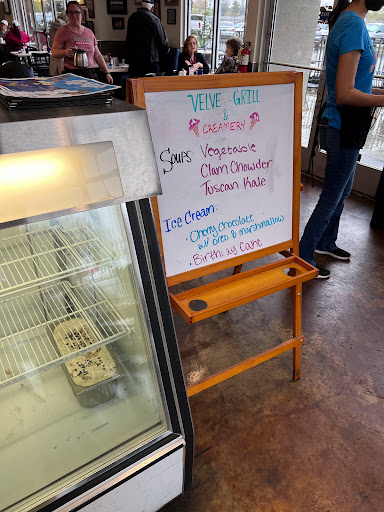 VELVET GRILL
&
CREAMERY
Soups: Vegetable
Clam Chowder
Tuscan Kale
Ice Cream:
• Cherry Chocolate
w/ oreo & marshmallow
• Birthday Cake